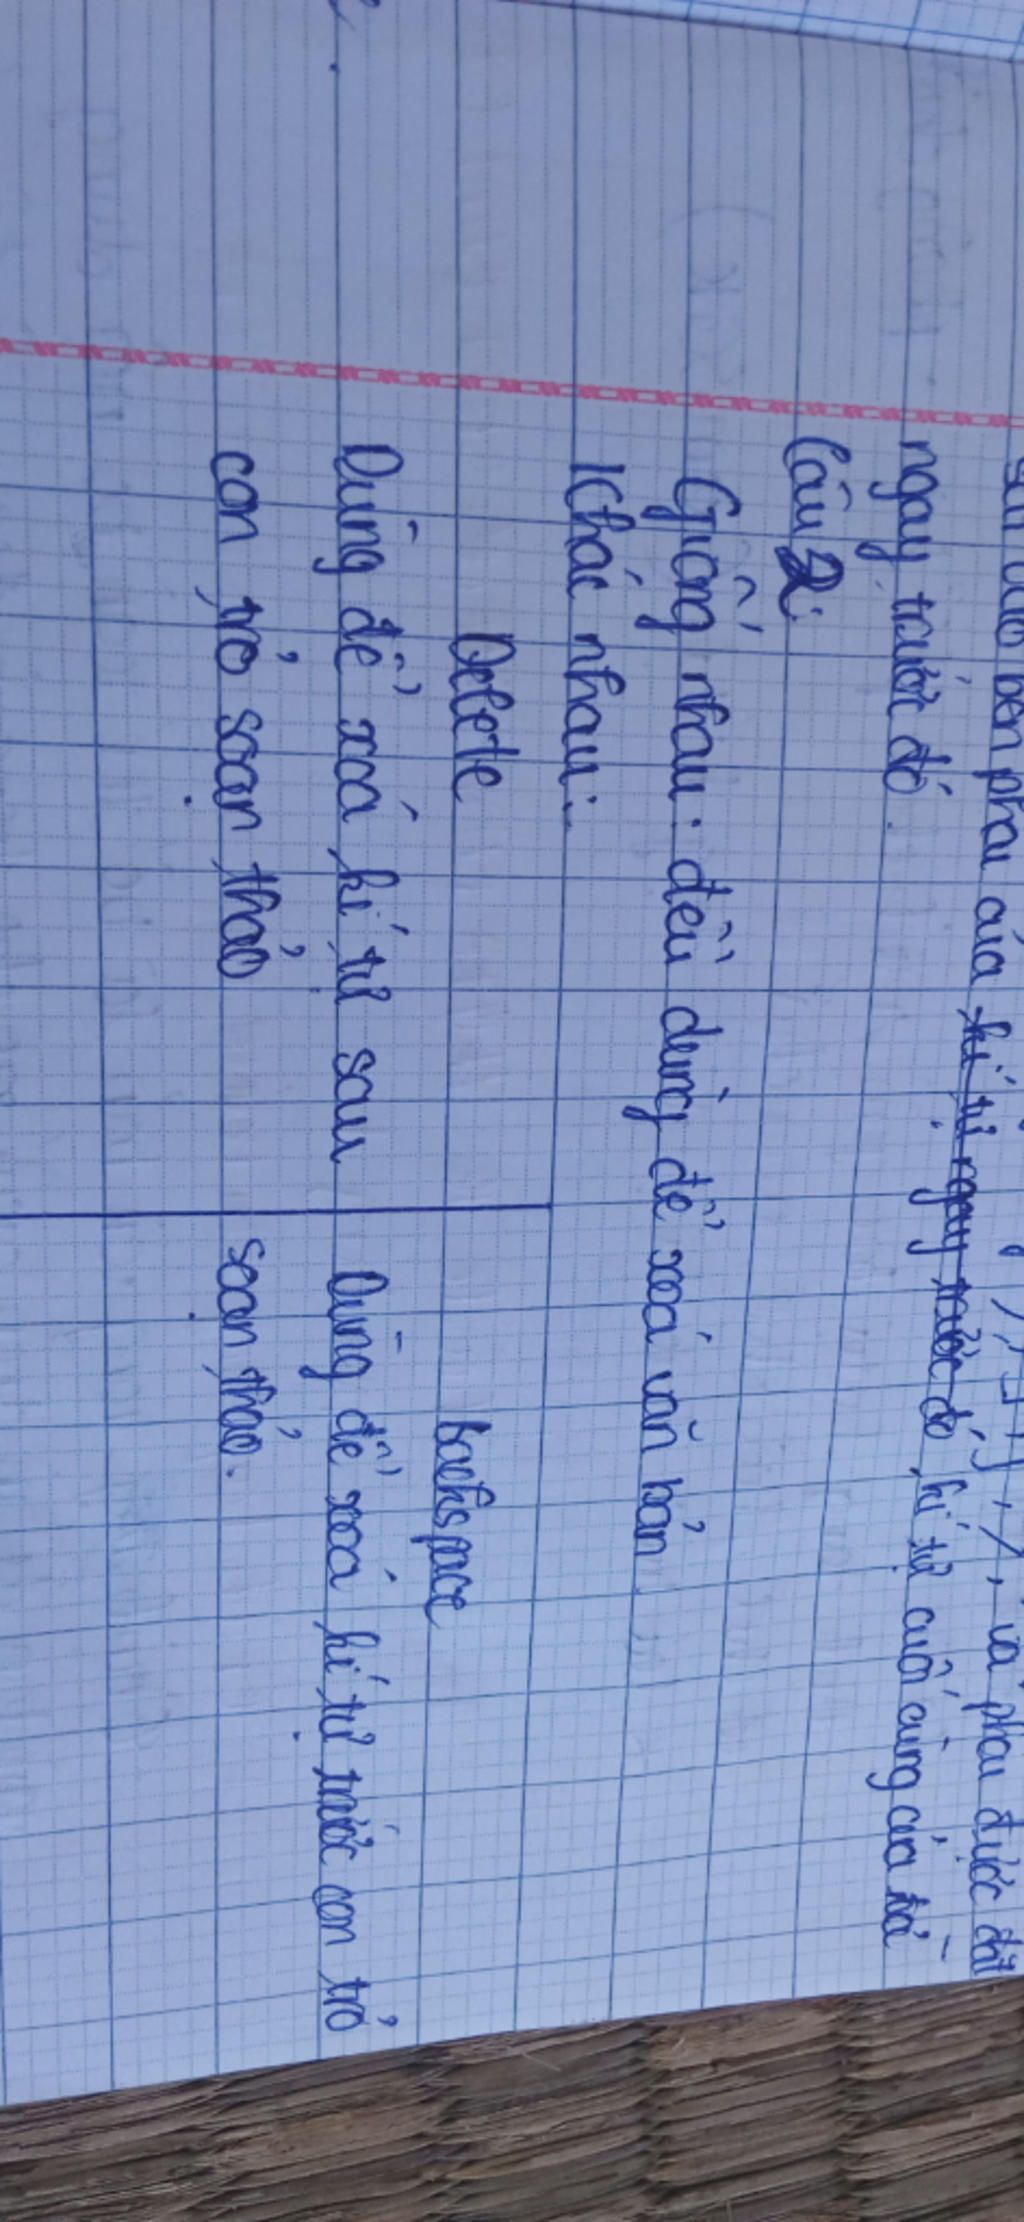 sát vào bên phải của kí tự ngay trước đó, kí tự cuối cùng của từ
ngay trước đó.
Câu 2:
Giống nhau: đều dùng để xoá văn bản
Khác nhau:
Delete
backspace
Dùng để xoá kí tự sau
con trỏ soạn thảo
Dùng để xoá kí tự trước con trỏ
soạn thảo.